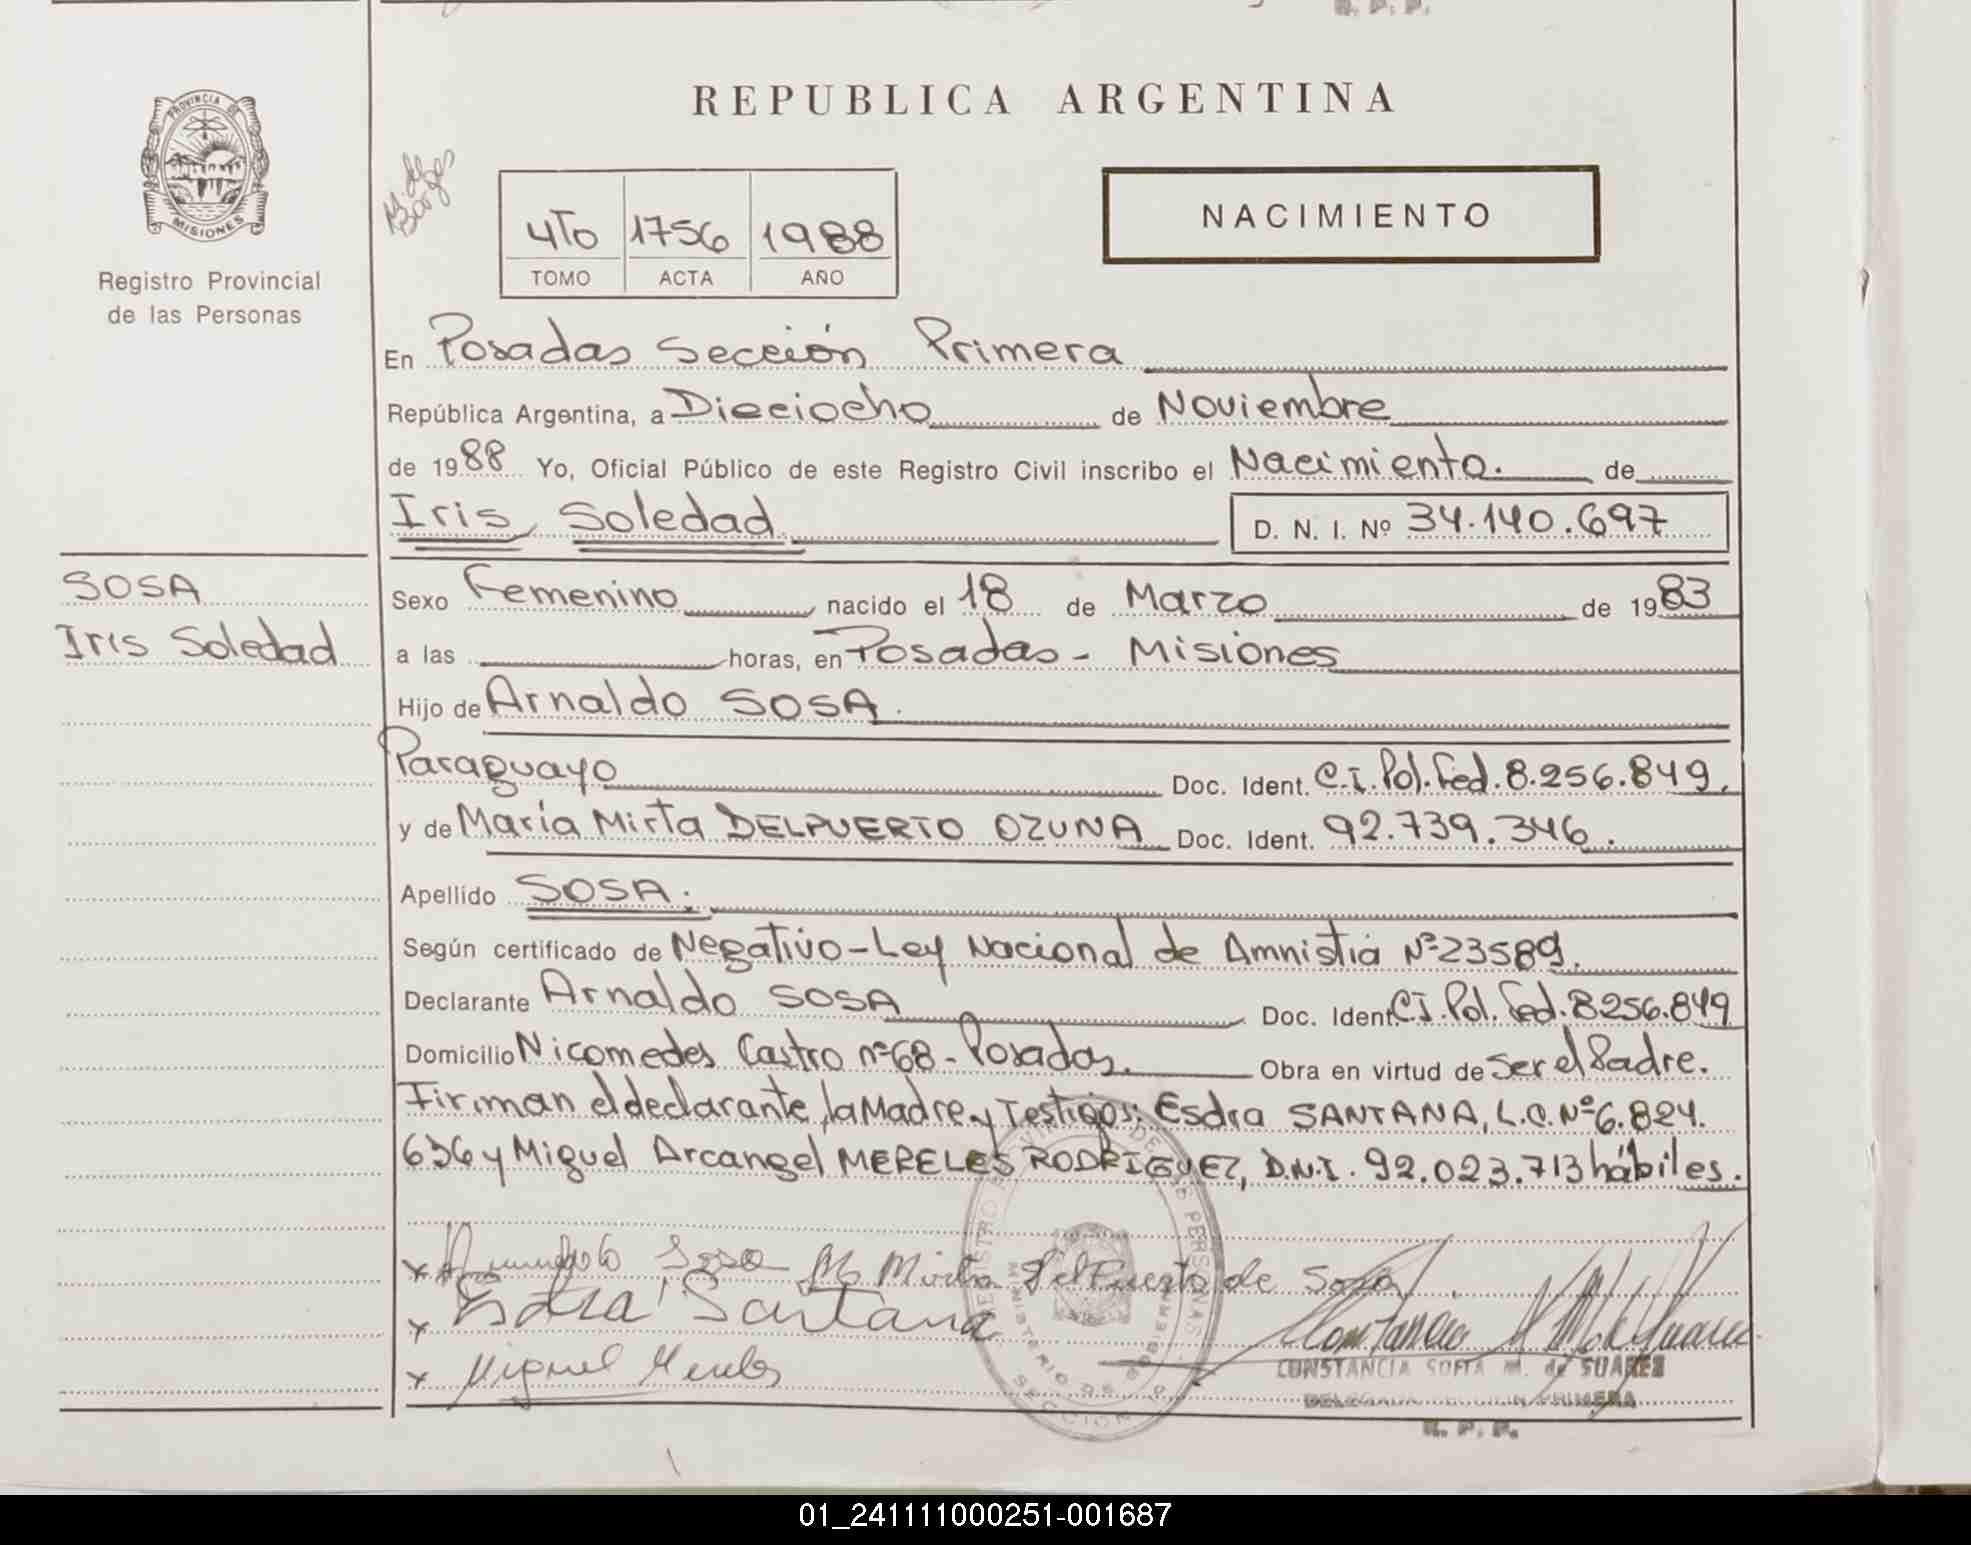 R. P. P.
REPUBLICA ARGENTINA
PROVINCIA DE
MISIONES
Registro Provincial
de las Personas
4To 1756 1988
TOMO ACTA AÑO
NACIMIENTO
En Posadas Sección Primera
República Argentina, a Dieciocho de Noviembre
de 1988 Yo, Oficial Público de este Registro Civil inscribo el Nacimiento. de
Iris Soledad D. N. I. Nº 34.140.697
SOSA
Iris Soledad
Sexo Femenino, nacido el 18 de Marzo de 1983
a las horas, en Posadas - Misiones
Hijo de Arnaldo SOSA.
Paraguayo Doc. Ident. C.I. Pol. Fed. 8.256.849.
y de María Mirta DELPUERTO OZUNA Doc. Ident. 92.739.346.
Apellido SOSA.
Según certificado de Negativo-Ley Nacional de Amnistia Nº23589.
Declarante Arnaldo SOSA Doc. Ident. C.I. Pol. Fed. 8256.849
Domicilio Nicomedes Castro nº68 - Posadas. Obra en virtud de ser el Padre.
Firman el declarante, la Madre y Testigos: Esdra SANTANA, L.C. Nº6.824.
636 y Miguel Arcangel MERELES RODRIGUEZ, D.N.I. 92.023.713 hábiles.
x Sosa Mirta DelPuerto de Sosa
x Esdra Santana
x Miguel Mereles
CONSTANCIA SOFIA M. de SUAREZ
DELEGADA SECCION PRIMERA
R. P. P.
REGISTRO PROVINCIAL DE LAS PERSONAS
MINISTERIO DE GOBIERNO
SECCION 1
01_241111000251-001687